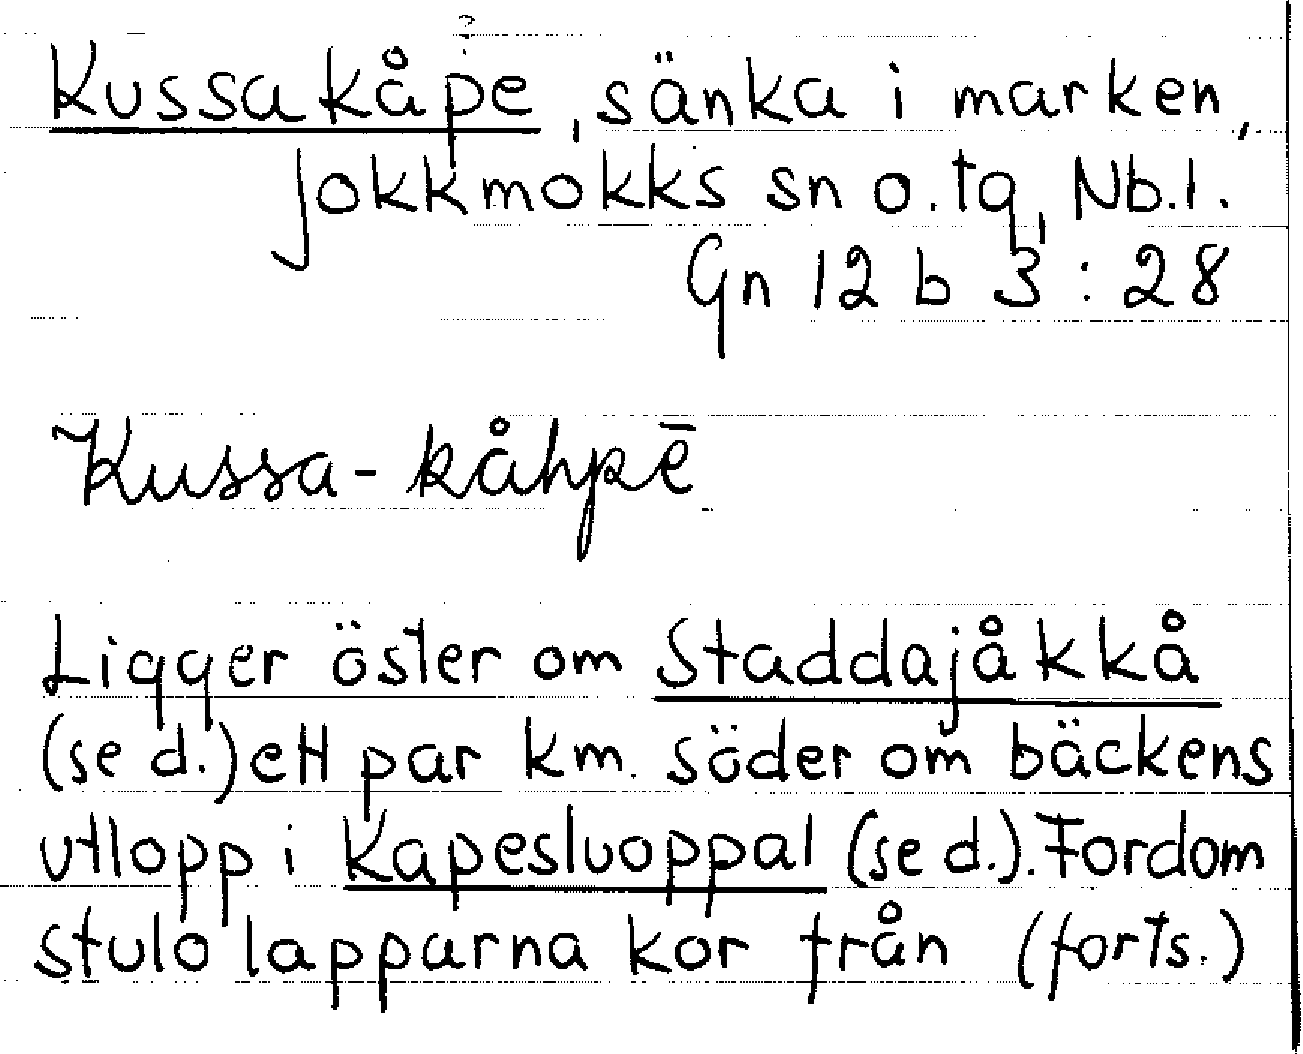 ?
Kussakåpe, sänka i marken,
Jokkmokks sn o. tg, Nb.l.
Gn 12 b 3 : 28
Kussa-kåhpē
Ligger öster om Staddajåkkå
(se d.) ett par km. söder om bäckens
utlopp i Kapesluoppal (se d.). Fordom
stulo lapparna kor från (forts.)